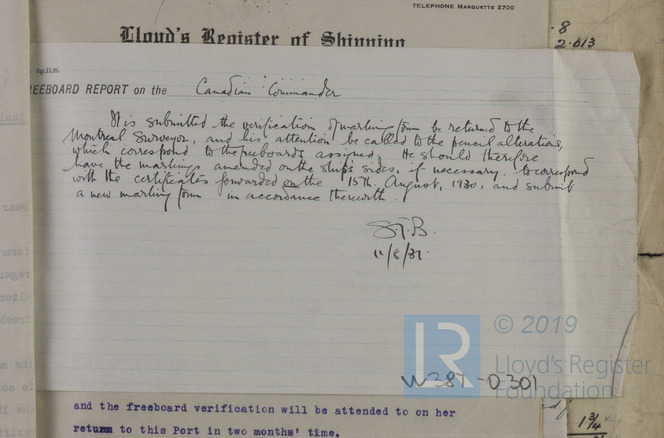 TELEPHONE MARQUETTE 2700
8
2.813
Lloyd's Register of Shipping
REEBOARD REPORT on the Canadian Commander
It is submitted the verification of marking form be returned to the
Montreal Surveyor, and his attention be called to the pencil alterations,
which correspond to the freeboards assigned. He should therefore
have the markings amended on the ship's sides, if necessary, to correspond
with the certificates forwarded on the 15th August, 1930, and submit
a new marking form in accordance therewith.
11/8/31.
© 2019
LR
Lloyd's Register
Foundation
W381-0301
and the freeboard verification will be attended to on her
return to this Port in two months' time.
1 3/4